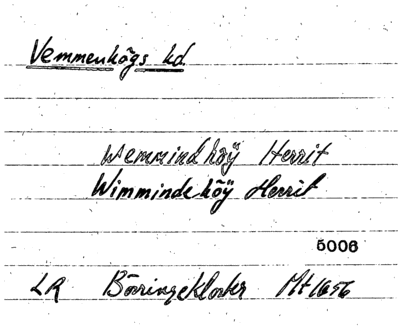 Vemmenhögs hd.
Wemmindhöÿ Herrit
Wimmindehöÿ Herrit
5006
LR Börringekloster Mt 1656